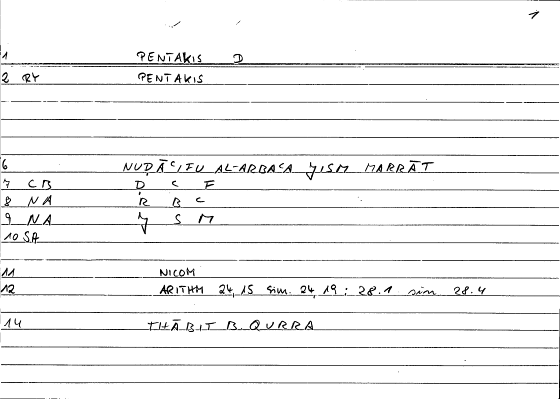 1
1 PENTAKIS D
2 RY PENTAKIS
6 NUḌĀʿIFU AL-ARBAʿA ǦISM MARRĀT
7 CB Ḍ ʿ F
8 NA R B ʿ
9 NA Ǧ S M
10 SA
11 NICOM
12 ARITHM 24, 15 sim. 24, 19 ; 28.1 sim 28.4
14 THĀBIT B. QURRA